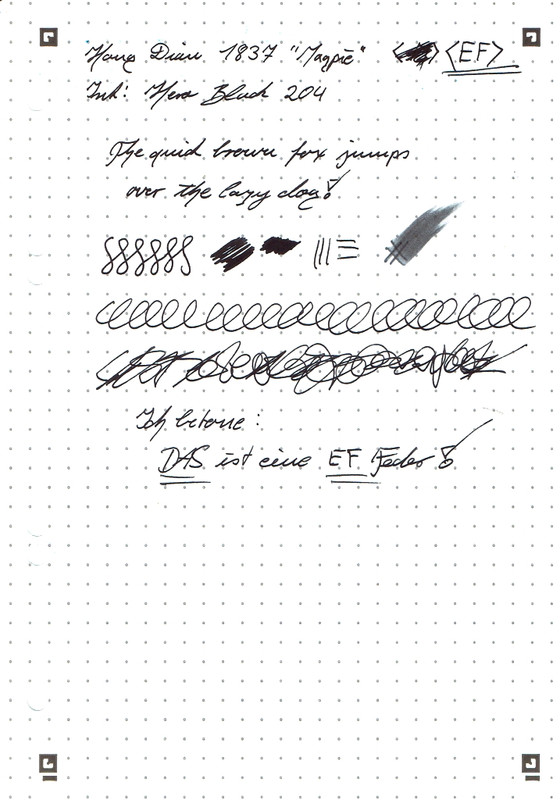 Hong Dian 1837 "Magpie" <EF>
Ink: Hero Black 204
The quick brown fox jumps
over the lazy dog!
Ich betone:
DAS ist eine EF Feder!